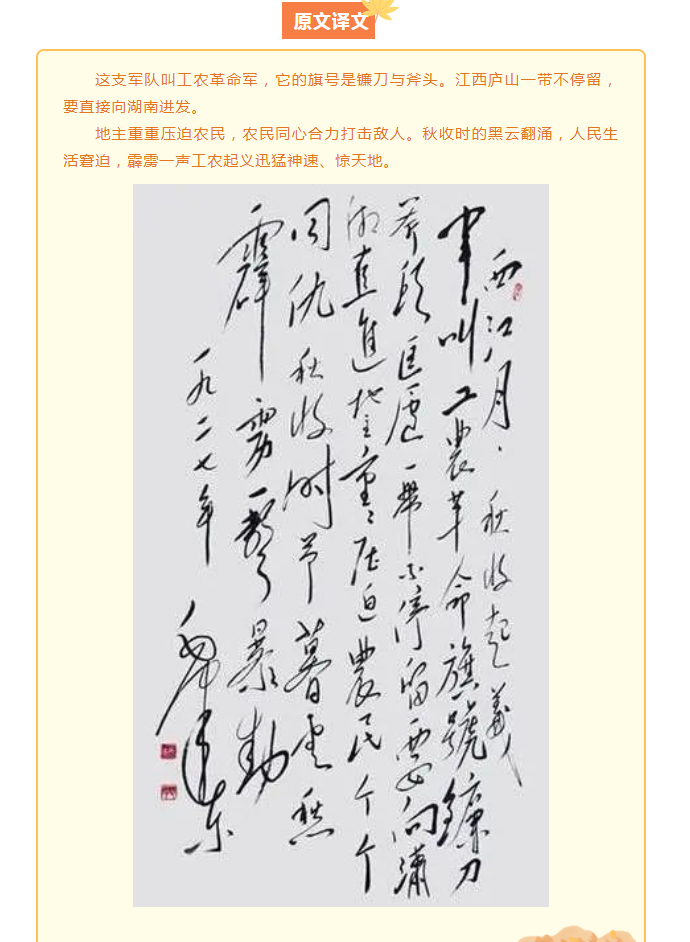 原文译文
这支军队叫工农革命军，它的旗号是镰刀与斧头。江西庐山一带不停留，
要直接向湖南进发。
地主重重压迫农民，农民同心合力打击敌人。秋收时的黑云翻涌，人民生
活窘迫，霹雳一声工农起义迅猛神速、惊天地。
西江月·秋收起義
軍叫工農革命旗號鐮刀
斧头匡廬一帶不停留要向瀟
湘直進地主重重压迫農民个个
同仇秋收时节暮云愁
霹雳一聲暴動
一九二七年
毛泽东